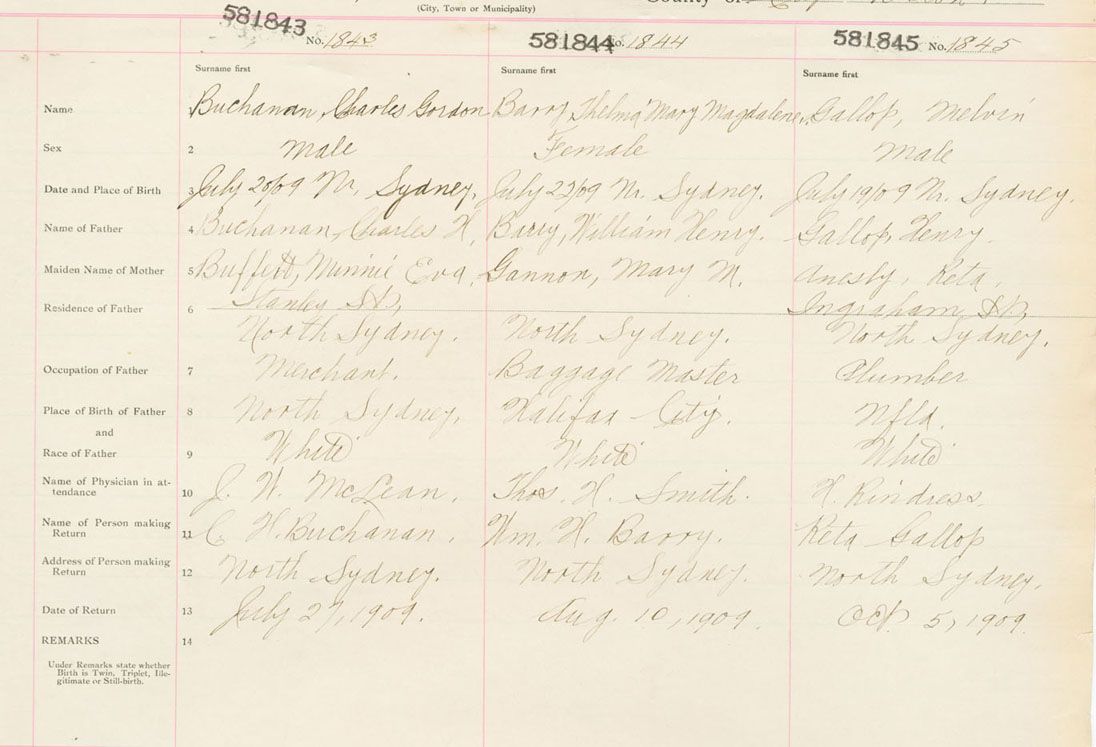 (City, Town or Municipality)
County of
581843 No. 1843 581844 No. 1844 581845 No. 1845
Surname first Surname first Surname first
Name 1 Buchanan, Charles Gordon Barry, Thelma Mary Magdalene. Gallop, Melvin
Sex 2 Male Female Male
Date and Place of Birth 3 July 20/09 Nr. Sydney. July 22/09 Nr. Sydney. July 19/09 Nr. Sydney.
Name of Father 4 Buchanan, Charles H. Barry, William Henry. Gallop, Henry.
Maiden Name of Mother 5 Buffett, Minnie Eva. Gannon, Mary M. Anesby, Reta.
Stanley St, Ingraham St,
Residence of Father 6
North Sydney. North Sydney. North Sydney.
Occupation of Father 7 Merchant. Baggage Master Plumber
Place of Birth of Father 8 North Sydney. Halifax City. Nfld.
and
Race of Father 9 White White White
Name of Physician in at-
tendance 10 J. W. McLean. Thos. H. Smith. H. Rindress.
Name of Person making
Return 11 C. H. Buchanan. Wm. H. Barry. Reta Gallop
Address of Person making
Return 12 North Sydney. North Sydney. North Sydney.
Date of Return 13 July 27, 1909. Aug. 10, 1909. Oct 5, 1909.
REMARKS 14
Under Remarks state whether
Birth is Twin, Triplet, Ille-
gitimate or Still-birth.